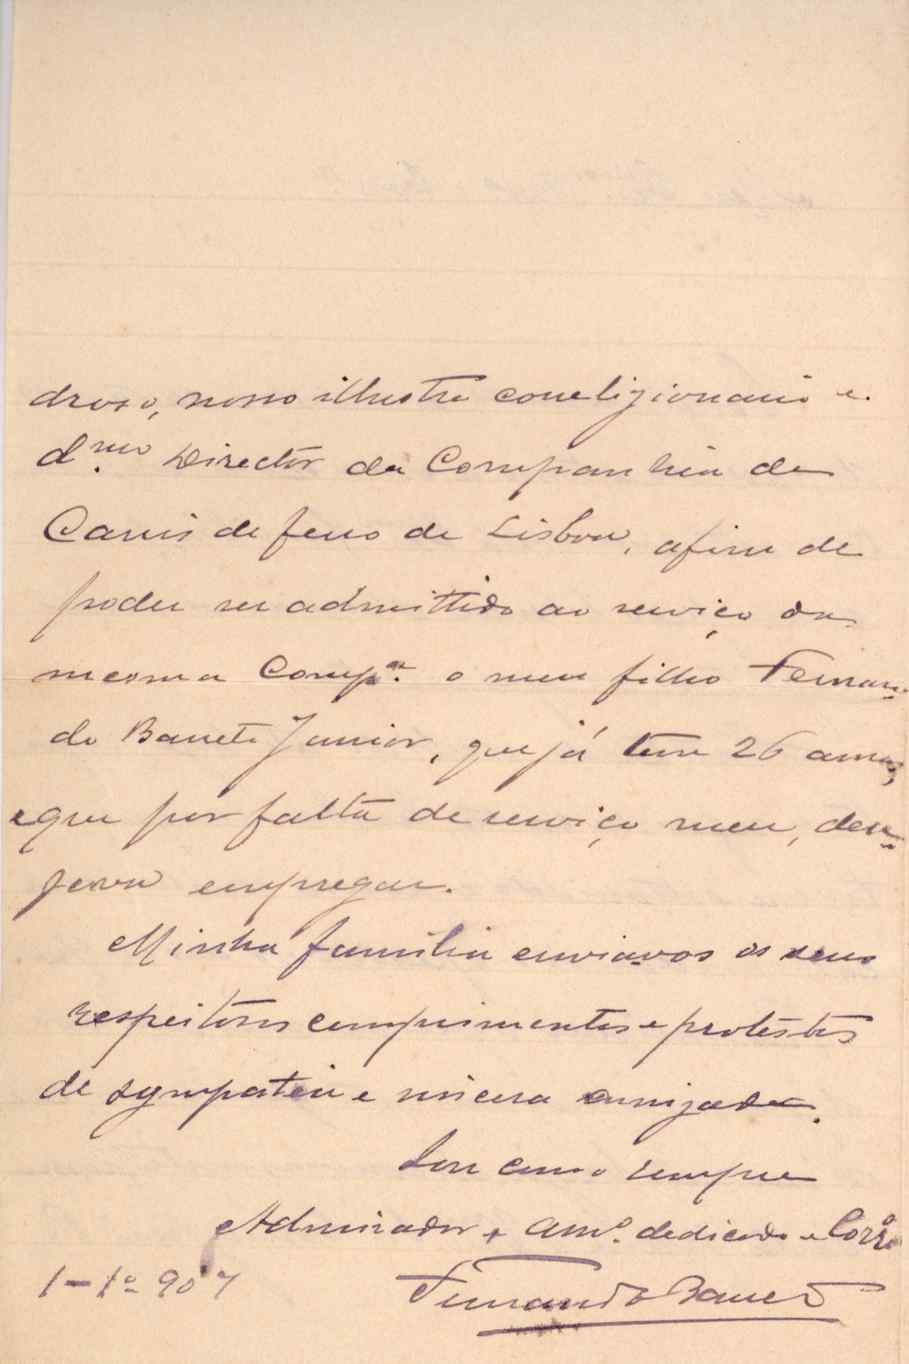 droso, nosso illustre correligionario e
d.mo Director da Companhia de
Carris de ferro de Lisboa, afim de
poder ser admittido ao serviço da
mesma Comp.a o meu filho Fernan-
do Barreto Junior, que já tem 26 annos,
e que por falta de serviço meu, dese-
java empregar.
Minha familia enviavos os seus
respeitosos cumprimentos e protestos
de sympatia e sincera amizade.
Sou como sempre
Admirador e Am.o dedicado e Corr.o
1-1º 907
Fernando Barreto